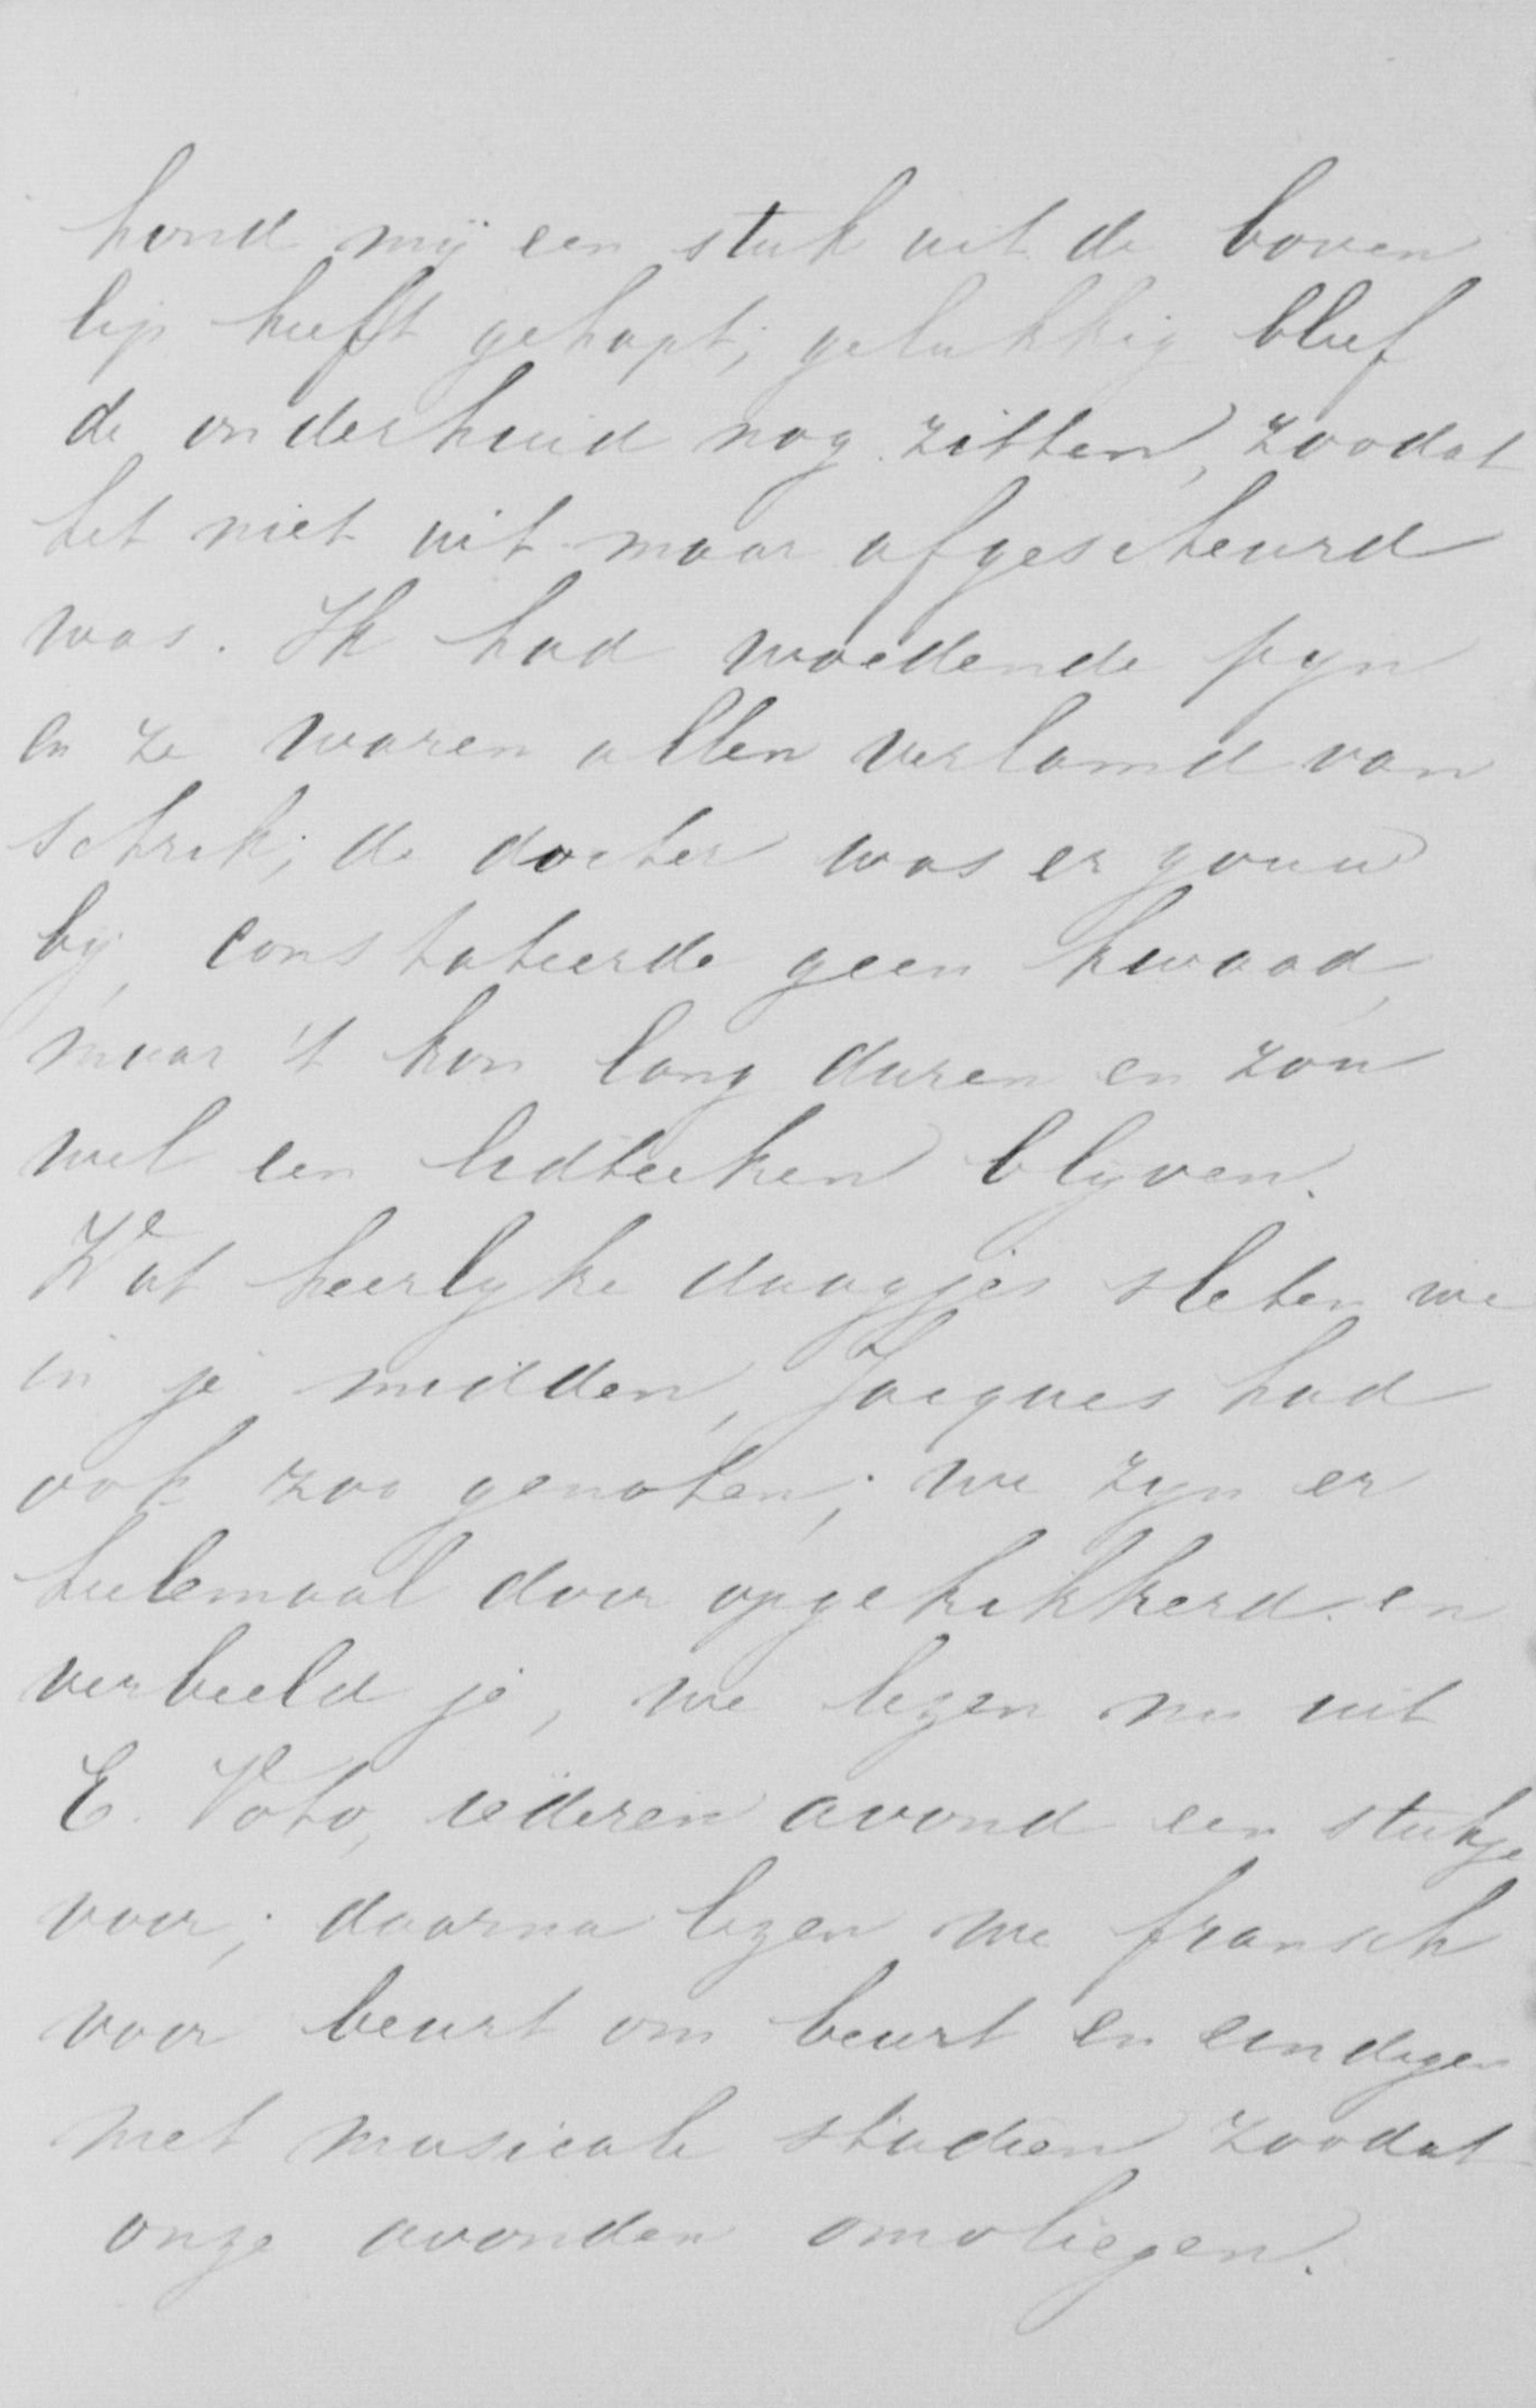 hond mij een stuk uit de boven
lip heeft gehapt; gelukkig bleef
de onderhuid nog zitten, zoodat
het niet uit maar afgescheurd
was. Ik had woedende pijn
en ze waren allen verlamd van
schrik; de docter was er gouw
bij, constateerde geen kwaad,
maar 't kon lang duren en zou
wel een lidteeken blijven.
Wat heerlijke daagjes sleten we
in je midden, Jacques had
ook zoo genoten; we zijn er
heelemaal door opgekikkerd en
verbeeld je, we lezen nu uit
E. Voto, iederen avond een stukje
voor; daarna lezen we fransch
voor beurt om beurt en eindigen
met musicale studien zoodat
onze avonden omvliegen.